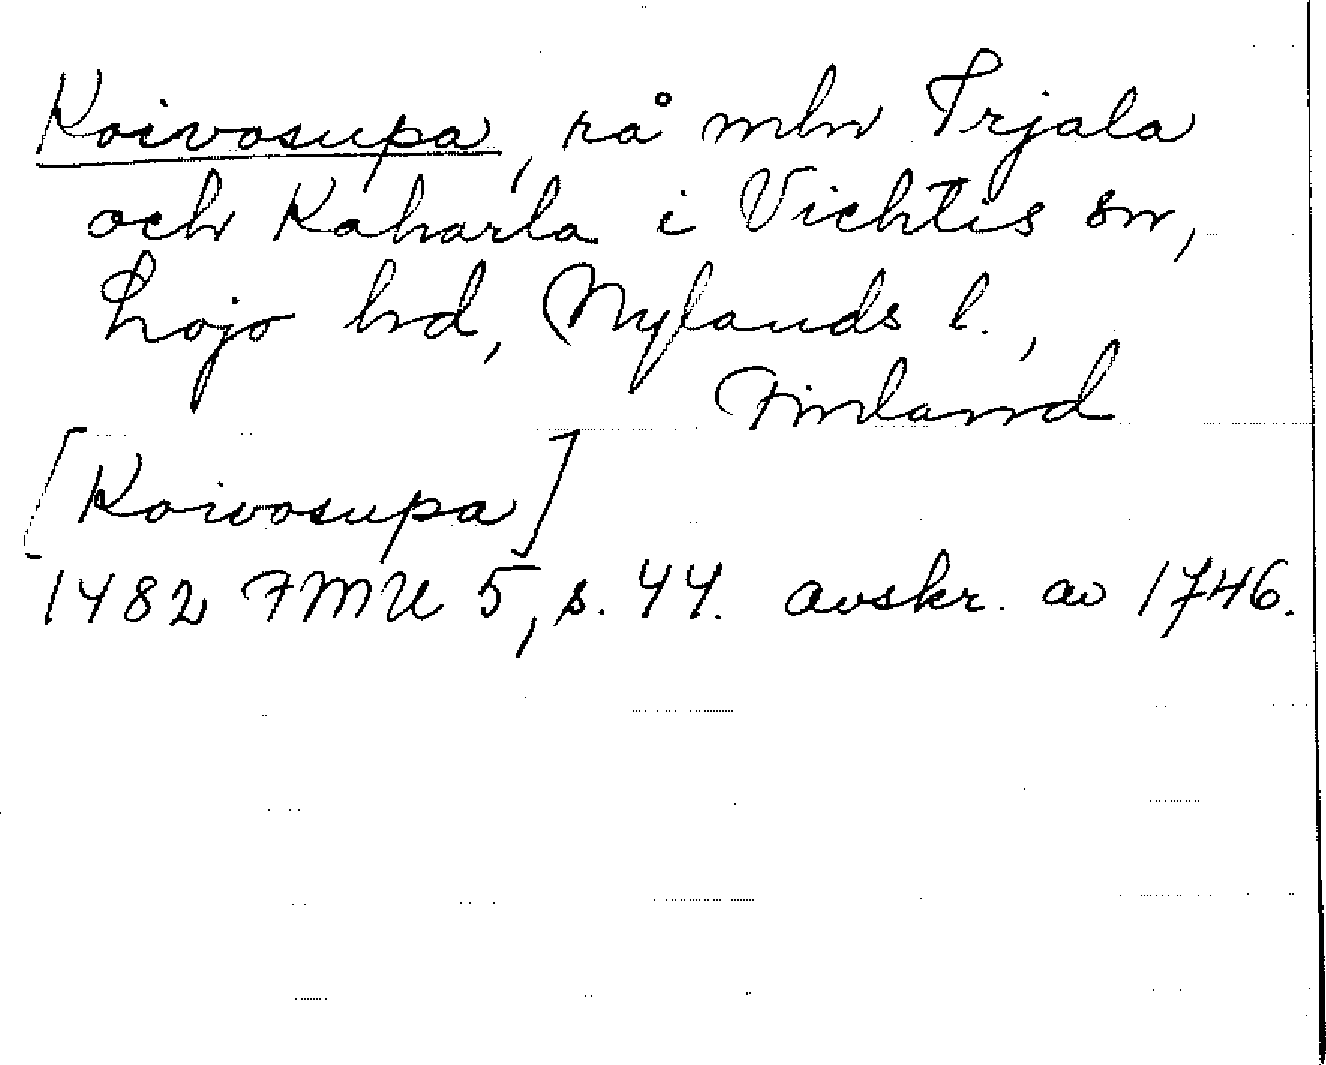 Koivosupa, rå mln Irjala
och Kaharla i Vichtis sn,
Lojo hd, Nylands l.,
Finland
[Koivosupa]
1482 FMU 5, s. 44. avskr. av 1746.